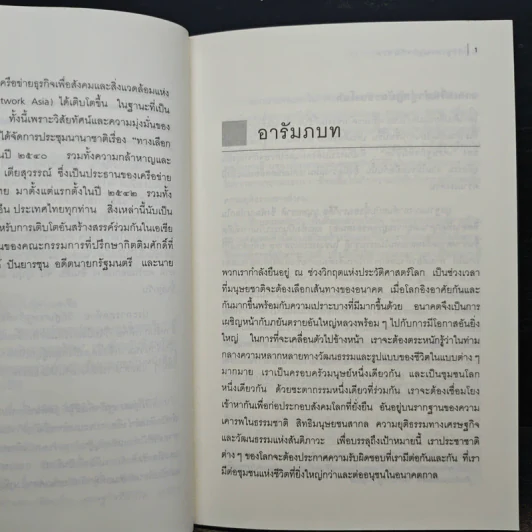 ครือข่ายธุรกิจเพื่อสังคมและสิ่งแวดล้อมแห่ง
etwork Asia) ได้เติบโตขึ้น ในฐานะที่เป็น
ทั้งนี้เพราะวิสัยทัศน์และความมุ่งมั่นของ
ได้จัดการประชุมนานาชาติเรื่อง "ทางเลือก
นปี ๒๕๔๐ รวมทั้งความกล้าหาญและ
เตียสุวรรณ์ ซึ่งเป็นประธานของเครือข่าย
ทย มาตั้งแต่แรกตั้งในปี ๒๕๔๒ รวมทั้ง
ยืน ประเทศไทยทุกท่าน สิ่งเหล่านี้นับเป็น
หรับการเติบโตอันสร้างสรรค์ร่วมกันในเอเชีย
นของคณะกรรมการที่ปรึกษากิตติมศักดิ์ที่
ปันยารชุน อดีตนายกรัฐมนตรี และนาย
1
อารัมภบท
พวกเรากำลังยืนอยู่ ณ ช่วงวิกฤตแห่งประวัติศาสตร์โลก เป็นช่วงเวลา
ที่มนุษยชาติจะต้องเลือกเส้นทางของอนาคต เมื่อโลกอิงอาศัยกันและ
กันมากขึ้นพร้อมกับความเปราะบางที่มีมากขึ้นด้วย อนาคตจึงเป็นการ
เผชิญหน้ากับภยันตรายอันใหญ่หลวงพร้อม ๆ ไปกับการมีโอกาสอันยิ่ง
ใหญ่ ในการที่จะเคลื่อนตัวไปข้างหน้า เราจะต้องตระหนักรู้ว่าในท่าม
กลางความหลากหลายทางวัฒนธรรมและรูปแบบของชีวิตในแบบต่าง ๆ
มากมาย เราเป็นครอบครัวมนุษย์หนึ่งเดียวกัน และเป็นชุมชนโลก
หนึ่งเดียวกัน ด้วยชะตากรรมหนึ่งเดียวที่ร่วมกัน เราจะต้องเชื่อมโยง
เข้าหากันเพื่อก่อประกอบสังคมโลกที่ยั่งยืน อันอยู่บนรากฐานของความ
เคารพในธรรมชาติ สิทธิมนุษยชนสากล ความยุติธรรมทางเศรษฐกิจ
และวัฒนธรรมแห่งสันติภาวะ เพื่อบรรลุถึงเป้าหมายนี้ เราประชาชาติ
ต่าง ๆ ของโลกจะต้องประกาศความรับผิดชอบที่เรามีต่อกันและกัน ที่เรา
มีต่อชุมชนแห่งชีวิตที่ยิ่งใหญ่กว่าและต่ออนุชนในอนาคตกาล